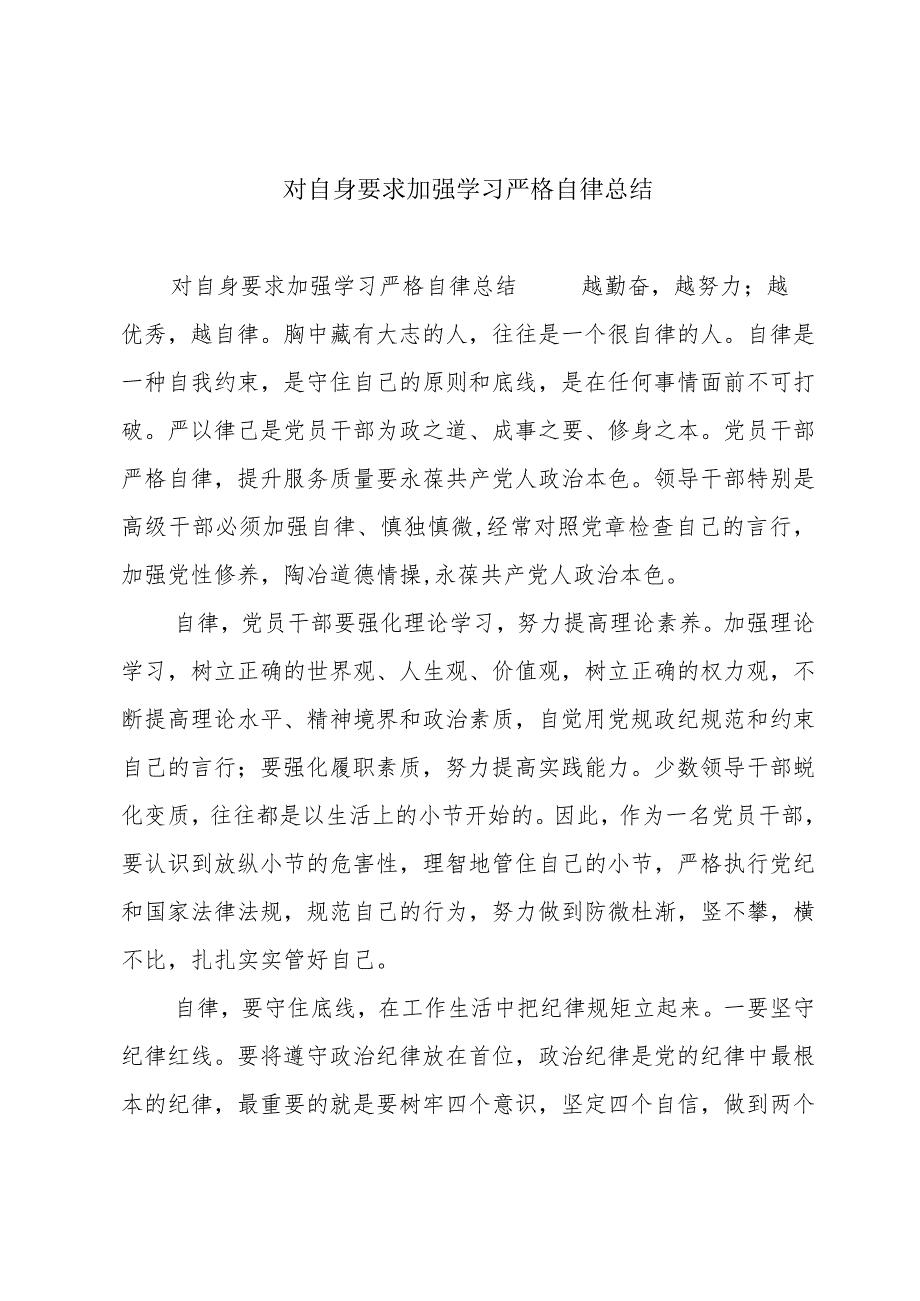 对自身要求加强学习严格自律总结
对自身要求加强学习严格自律总结 越勤奋，越努力；越
优秀，越自律。胸中藏有大志的人，往往是一个很自律的人。自律是
一种自我约束，是守住自己的原则和底线，是在任何事情面前不可打
破。严以律己是党员干部为政之道、成事之要、修身之本。党员干部
严格自律，提升服务质量要永葆共产党人政治本色。领导干部特别是
高级干部必须加强自律、慎独慎微,经常对照党章检查自己的言行，
加强党性修养，陶冶道德情操,永葆共产党人政治本色。
自律，党员干部要强化理论学习，努力提高理论素养。加强理论
学习，树立正确的世界观、人生观、价值观，树立正确的权力观，不
断提高理论水平、精神境界和政治素质，自觉用党规政纪规范和约束
自己的言行；要强化履职素质，努力提高实践能力。少数领导干部蜕
化变质，往往都是以生活上的小节开始的。因此，作为一名党员干部，
要认识到放纵小节的危害性，理智地管住自己的小节，严格执行党纪
和国家法律法规，规范自己的行为，努力做到防微杜渐，竖不攀，横
不比，扎扎实实管好自己。
自律，要守住底线，在工作生活中把纪律规矩立起来。一要坚守
纪律红线。要将遵守政治纪律放在首位，政治纪律是党的纪律中最根
本的纪律，最重要的就是要树牢四个意识，坚定四个自信，做到两个